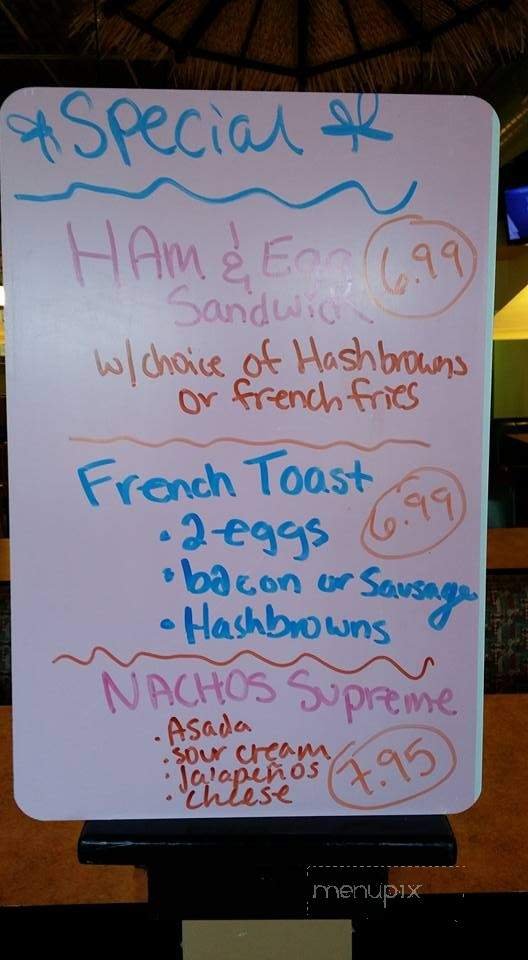 Special
HAM & Egg 6.99
Sandwich
w/choice of Hashbrowns
or french fries
French Toast 6.99
• 2 eggs
• bacon or Sausage
• Hashbrowns
NACHOS Supreme
• Asada
• sour cream
• Jalapeños 7.95
• cheese
menupix